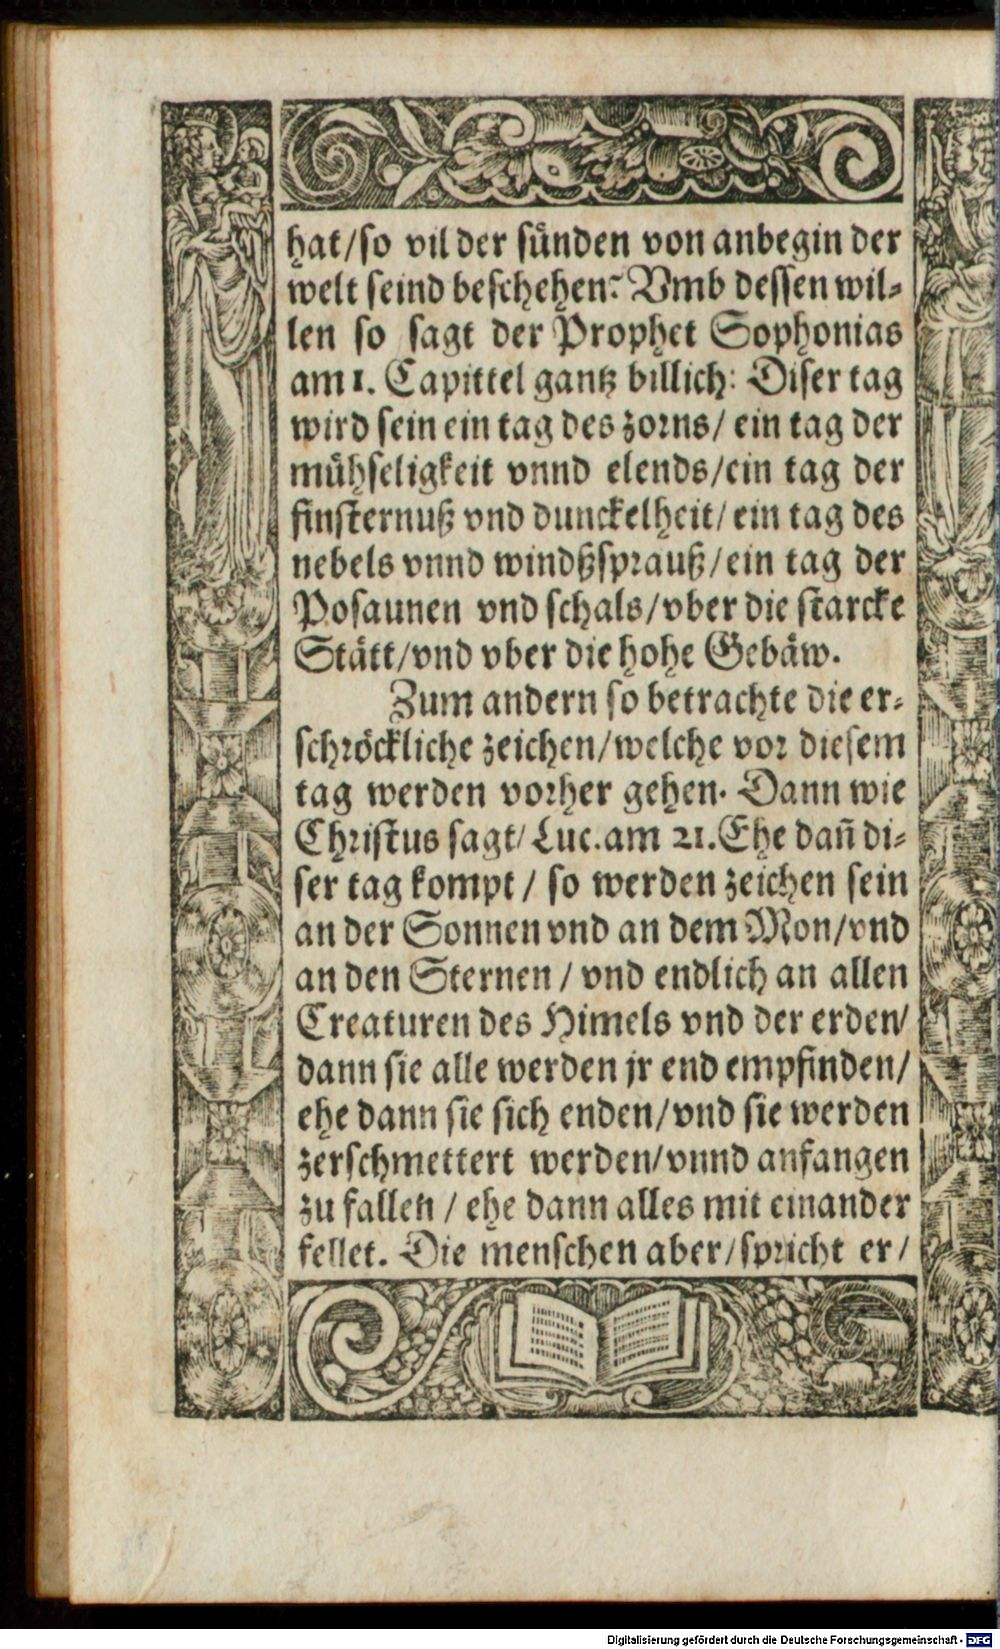 hat/so vil der sünden von anbegin der
welt seind beschehen? Vmb dessen wil-
len so sagt der Prophet Sophonias
am 1. Capittel gantz billich: Diser tag
wird sein ein tag des zorns/ ein tag der
mühseligkeit vnnd elends/ein tag der
finsternuß vnd dunckelheit/ ein tag des
nebels vnnd windßsprauß/ein tag der
Posaunen vnd schals/vber die starcke
Stätt/vnd vber die hohe Gebäw.
Zum andern so betrachte die er-
schröckliche zeichen/welche vor diesem
tag werden vorher gehen. Dann wie
Christus sagt/ Luc. am 21. Ehe dañ di-
ser tag kompt / so werden zeichen sein
an der Sonnen vnd an dem Mon/vnd
an den Sternen / vnd endlich an allen
Creaturen des Himels vnd der erden/
dann sie alle werden jr end empfinden/
ehe dann sie sich enden/vnd sie werden
zerschmettert werden/vnnd anfangen
zu fallen / ehe dann alles mit einander
fellet. Die menschen aber/spricht er/
Digitalisierung gefördert durch die Deutsche Forschungsgemeinschaft - DFG